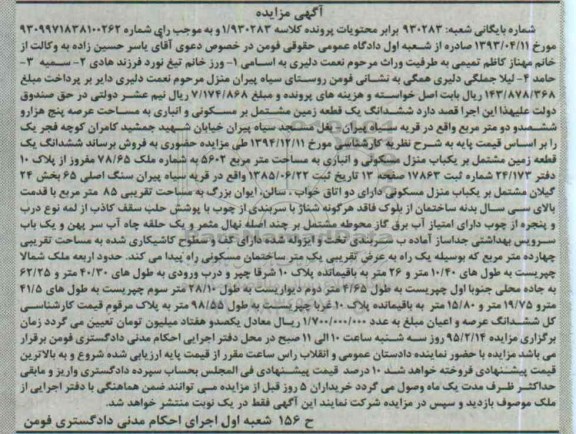 آگهی مزایده
شماره بایگانی شعبه: ۹۳۰۲۸۳ برابر محتویات پرونده کلاسه ۱/۹۳۰۲۸۳ و به موجب رای شماره ۹۳۰۹۹۷۱۸۳۸۱۰۰۲۶۲
مورخ ۱۳۹۳/۰۴/۱۱ صادره از شعبه اول دادگاه عمومی حقوقی فومن در خصوص دعوی آقای یاسر حسین زاده به وکالت از
خانم مهناز کاظم تمیمی به طرفیت وراث مرحوم نعمت دلیری به اسامی ۱- ورز خانم تیغ نورد فرزند هادی ۲- سمیه ۳-
حامد ۴- لیلا جملگی دلیری همگی به نشانی فومن روستای سیاه پیران منزل مرحوم نعمت دلیری دایر بر پرداخت مبلغ
۱۴۳/۸۷۸/۳۶۸ ریال بابت اصل خواسته و هزینه های پرونده و مبلغ ۷/۱۷۴/۸۶۸ ریال نیم عشر دولتی در حق صندوق
دولت علیهذا این اجرا قصد دارد ششدانگ یک قطعه زمین مشتمل بر مسکونی و انباری به مساحت عرصه پنج هزارو
ششصدو دو متر مربع واقع در قریه سیاه پیران - بغل مسجد سیاه پیران خیابان شهید جمشید کامران کوچه فجر یک
را بر اساس قیمت پایه به شرح نظریه کارشناسی مورخ ۱۳۹۴/۱۲/۱۱ طی مزایده حضوری به فروش برساند ششدانگ یک
قطعه زمین مشتمل بر یکباب منزل مسکونی و انباری به مساحت متر مربع ۵۶۰۲ به شماره ملک ۷۸/۶۵ مفروز از پلاک ۱۰
دفتر ۲۴/۱۷۳ شماره ثبت ۱۷۸۶۳ صفحه ۱۳ تاریخ ثبت ۱۳۸۵/۰۶/۲۲ واقع در قریه سیاه پیران سنگ اصلی ۶۵ بخش ۲۴
گیلان مشتمل بر یکباب منزل مسکونی دارای دو اتاق خواب ، سالن، ایوان بزرگ به مساحت تقریبی ۸۵ متر مربع با قدمت
بالای سی سال بدنه ساختمان از بلوک فاقد هرگونه شناژ با سربندی از چوب با پوشش حلب سقف کاذب از لمه نوع درب
و پنجره از چوب دارای امتیاز آب برق گاز محوطه مشتمل بر چند اصله نهال مثمر و یک حلقه چاه آب سر پهن و یک باب
سرویس بهداشتی جداساز آماده ب سربندی تخت و ایزوله شده دارای کف و سطوح کاشیکاری شده به مساحت تقریبی
چهارده متر مربع که بوسیله یک راه به عرض تقریبی یک متر ساختمان مسکونی راه پیدا می کند. حدود اربعه ملک شمالا
چپریست به طول های ۱۰/۴۰ متر و ۲۶ متر به باقیمانده پلاک ۱۰ شرقا چپر و درب ورودی به طول های ۴۰/۳۰ متر و ۶۲/۲۵
به جاده محلی جنوبا اول چپریست به طول ۴/۶۵ متر دوم دیواریست به طول ۲۸/۱۰ متر سوم چپریست به طول های ۴۱/۵
مترو ۱۹/۷۵ متر و ۱۵/۸۰ متر به باقیمانده پلاک ۱۰ غربا چپریست به طول ۹۸/۵۵ متر به پلاک مرقوم قیمت کارشناسی
کل ششدانگ عرصه و اعیان مبلغ به عدد ۱/۷۰۰/۰۰۰/۰۰۰ ریال معادل یکصدو هفتاد میلیون تومان تعیین می گردد زمان
برگزاری مزایده ۹۵/۲/۱۴ روز سه شنبه ساعت ۱۰ الی ۱۱ صبح در محل دفتر اجرایی احکام مدنی دادگستری فومن برقرار
می باشد مزایده با حضور نماینده دادستان عمومی و انقلاب راس ساعت مقرر از قیمت پایه ارزیابی شده شروع و به بالاترین
قیمت پیشنهادی فروخته خواهد شد ۱۰ درصد قیمت پیشنهادی فی المجلس بحساب سپرده دادگستری واریز و مابقی
حداکثر ظرف مدت یک ماه وصول می گردد خریداران ۵ روز قبل از مزایده می توانند ضمن هماهنگی با دفتر اجرایی از
ملک موصوف بازدید و سپس در مزایده شرکت نمایند این آگهی فقط در یک نوبت منتشر خواهد شد.
ح ۱۵۶ شعبه اول اجرای احکام مدنی دادگستری فومن